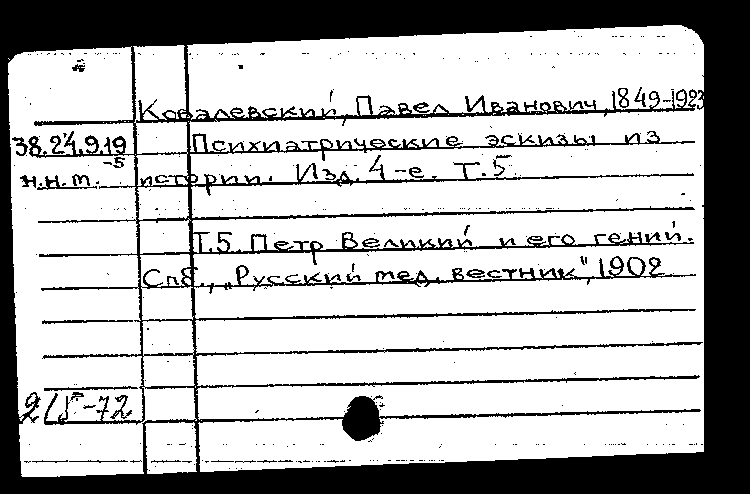 Ковалевский, Павел Иванович, 1849-1923
38.24.9.19 Психиатрические эскизы из
-5
н.н.т. истории. Изд. 4-е. Т.5
Т.5 Петр Великий и его гений.
Спб., „Русский мед. вестник", 1902